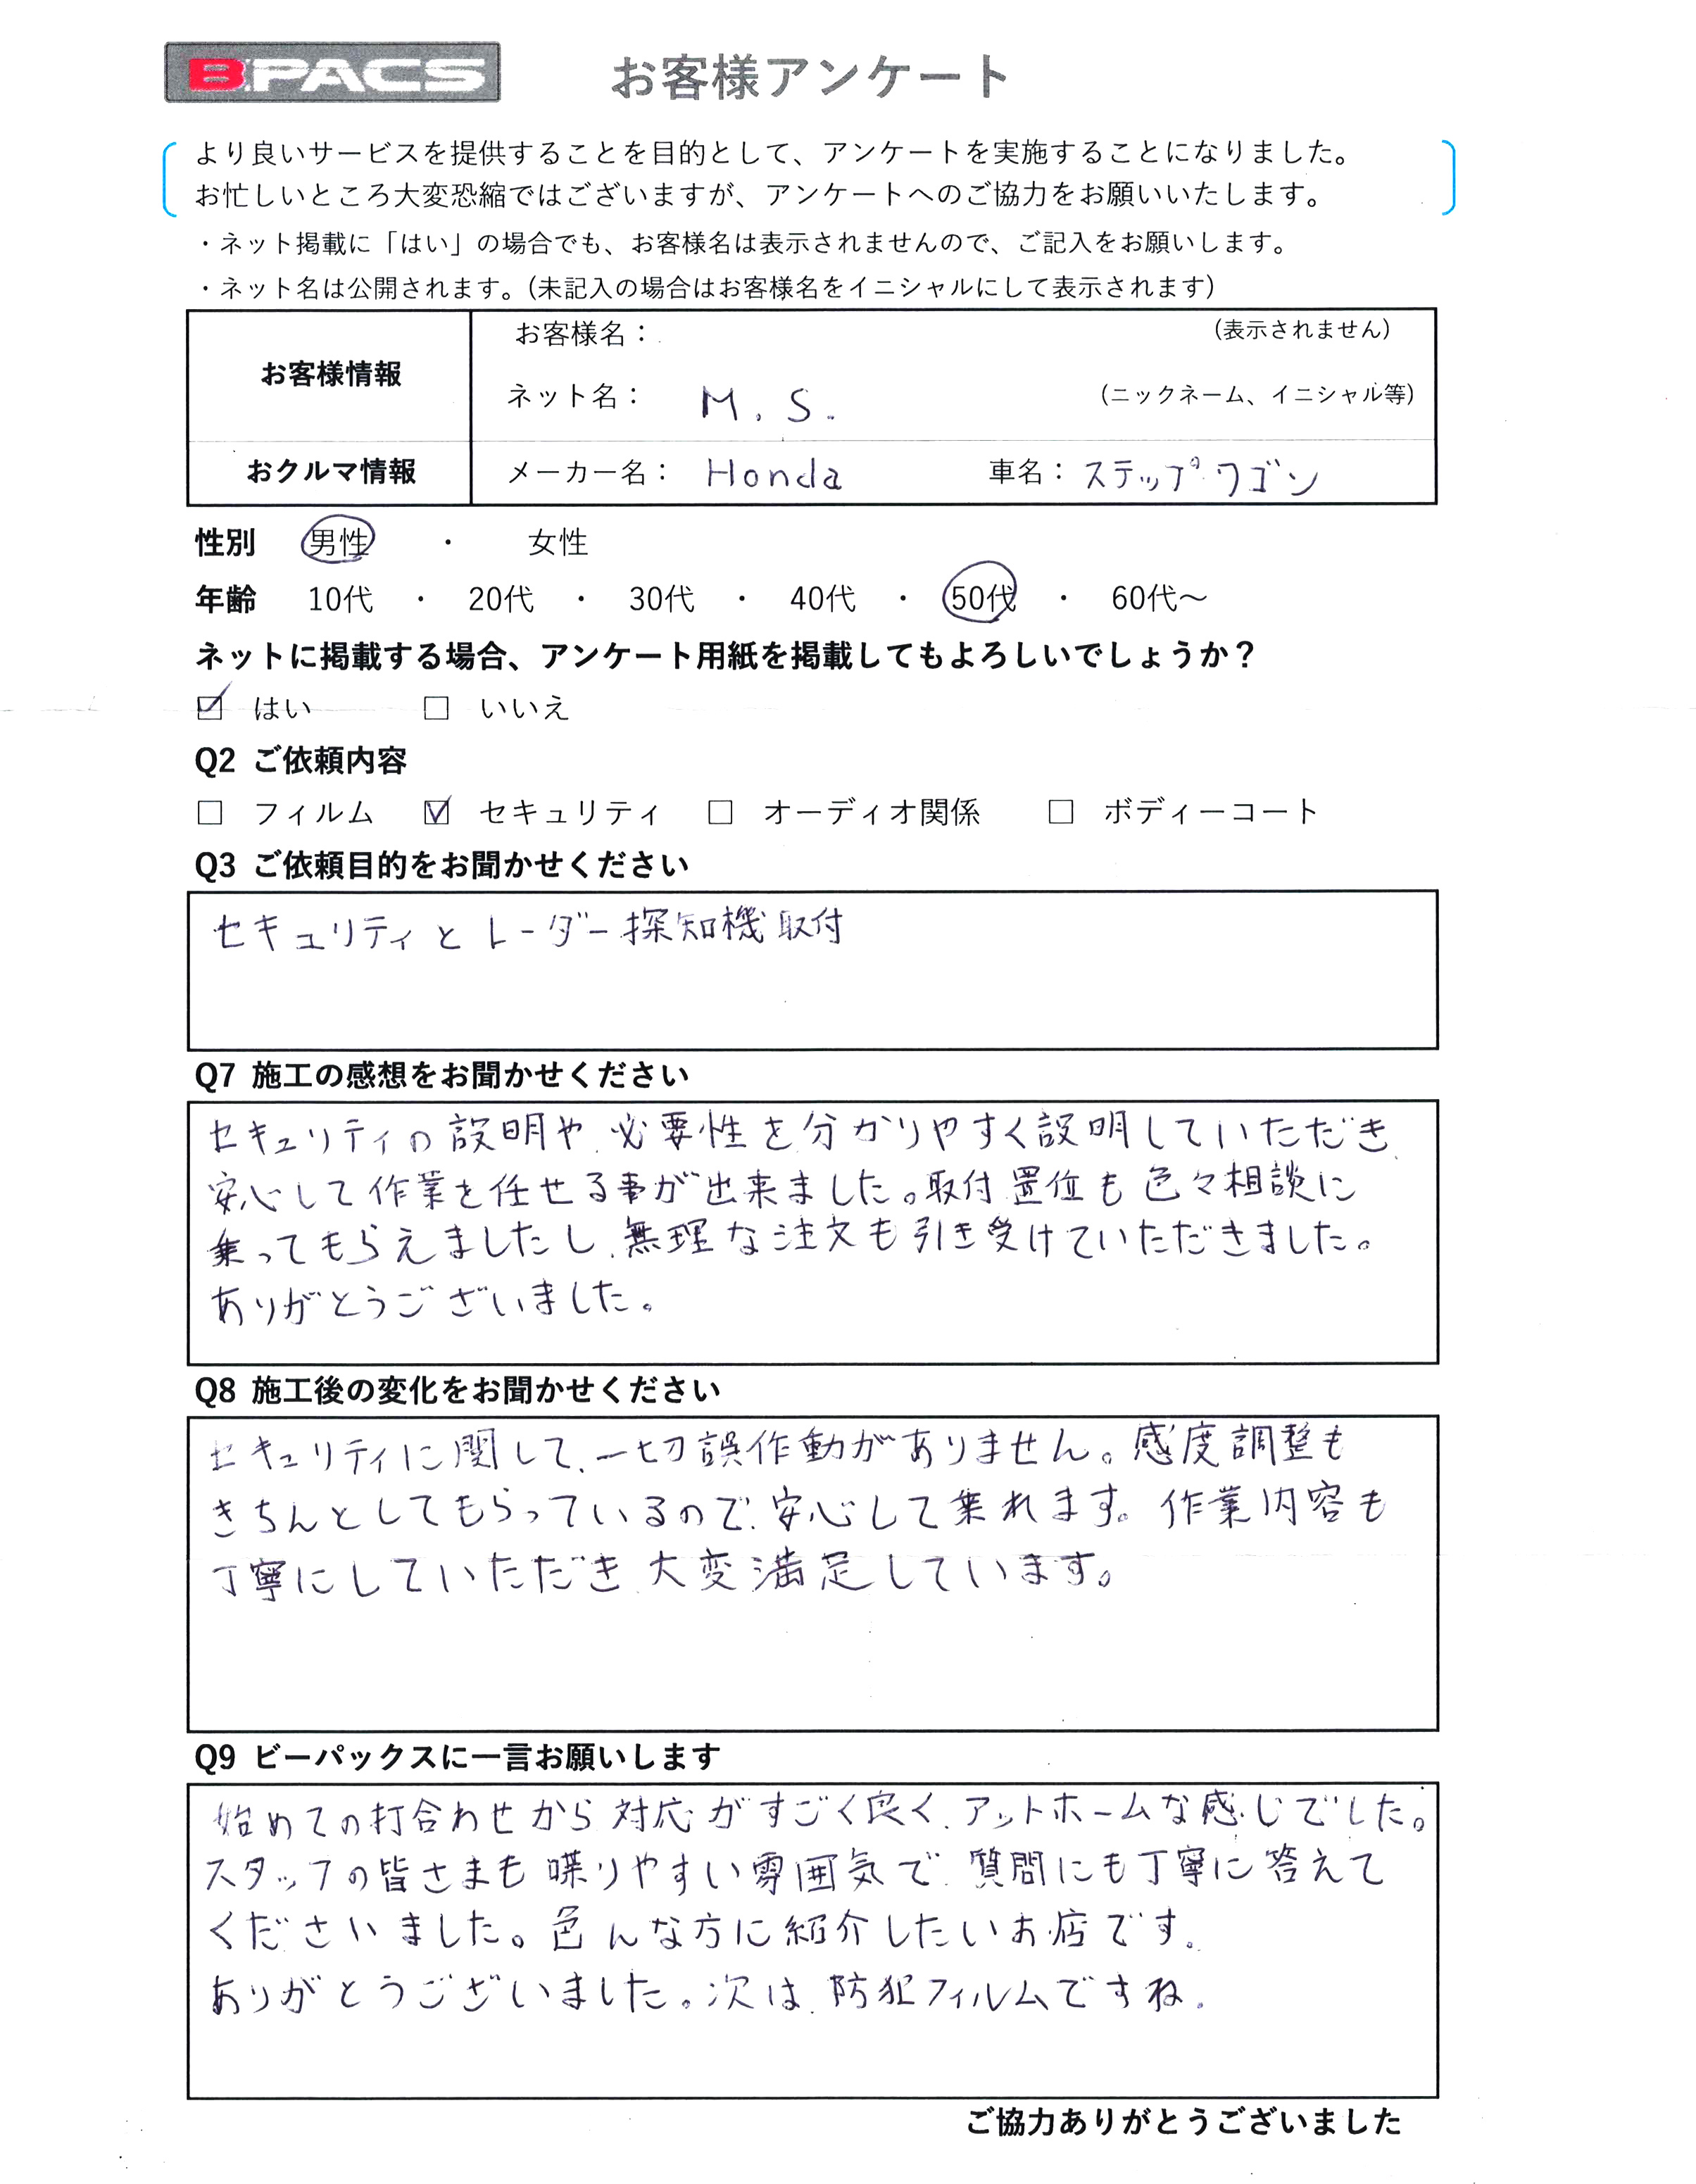 B:PACS お客様アンケート
より良いサービスを提供することを目的として、アンケートを実施することになりました。
お忙しいところ大変恐縮ではございますが、アンケートへのご協力をお願いいたします。
・ネット掲載に「はい」の場合でも、お客様名は表示されませんので、ご記入をお願いします。
・ネット名は公開されます。(未記入の場合はお客様名をイニシャルにして表示されます)
お客様情報
お客様名： (表示されません)
ネット名： M.S. (ニックネーム、イニシャル等)
おクルマ情報 メーカー名： Honda 車名： ステップワゴン
性別 男性 ・ 女性
年齢 10代 ・ 20代 ・ 30代 ・ 40代 ・ 50代 ・ 60代～
ネットに掲載する場合、アンケート用紙を掲載してもよろしいでしょうか？
☑ はい □ いいえ
Q2 ご依頼内容
□ フィルム ☑ セキュリティ □ オーディオ関係 □ ボディーコート
Q3 ご依頼目的をお聞かせください
セキュリティとレーダー探知機取付
Q7 施工の感想をお聞かせください
セキュリティの説明や、必要性を分かりやすく説明していただき、
安心して作業を任せる事が出来ました。取付置位も色々相談に
乗ってもらえましたし、無理な注文も引き受けていただきました。
ありがとうございました。
Q8 施工後の変化をお聞かせください
セキュリティに関して、一切誤作動がありません。感度調整も
きちんとしてもらっているので、安心して乗れます。作業内容も
丁寧にしていただき、大変満足しています。
Q9 ビーパックスに一言お願いします
始めての打合わせから対応がすごく良く、アットホームな感じでした。
スタッフの皆さまも喋りやすい雰囲気で、質問にも丁寧に答えて
くださいました。色んな方に紹介したいお店です。
ありがとうございました。次は、防犯フィルムですね。
ご協力ありがとうございました